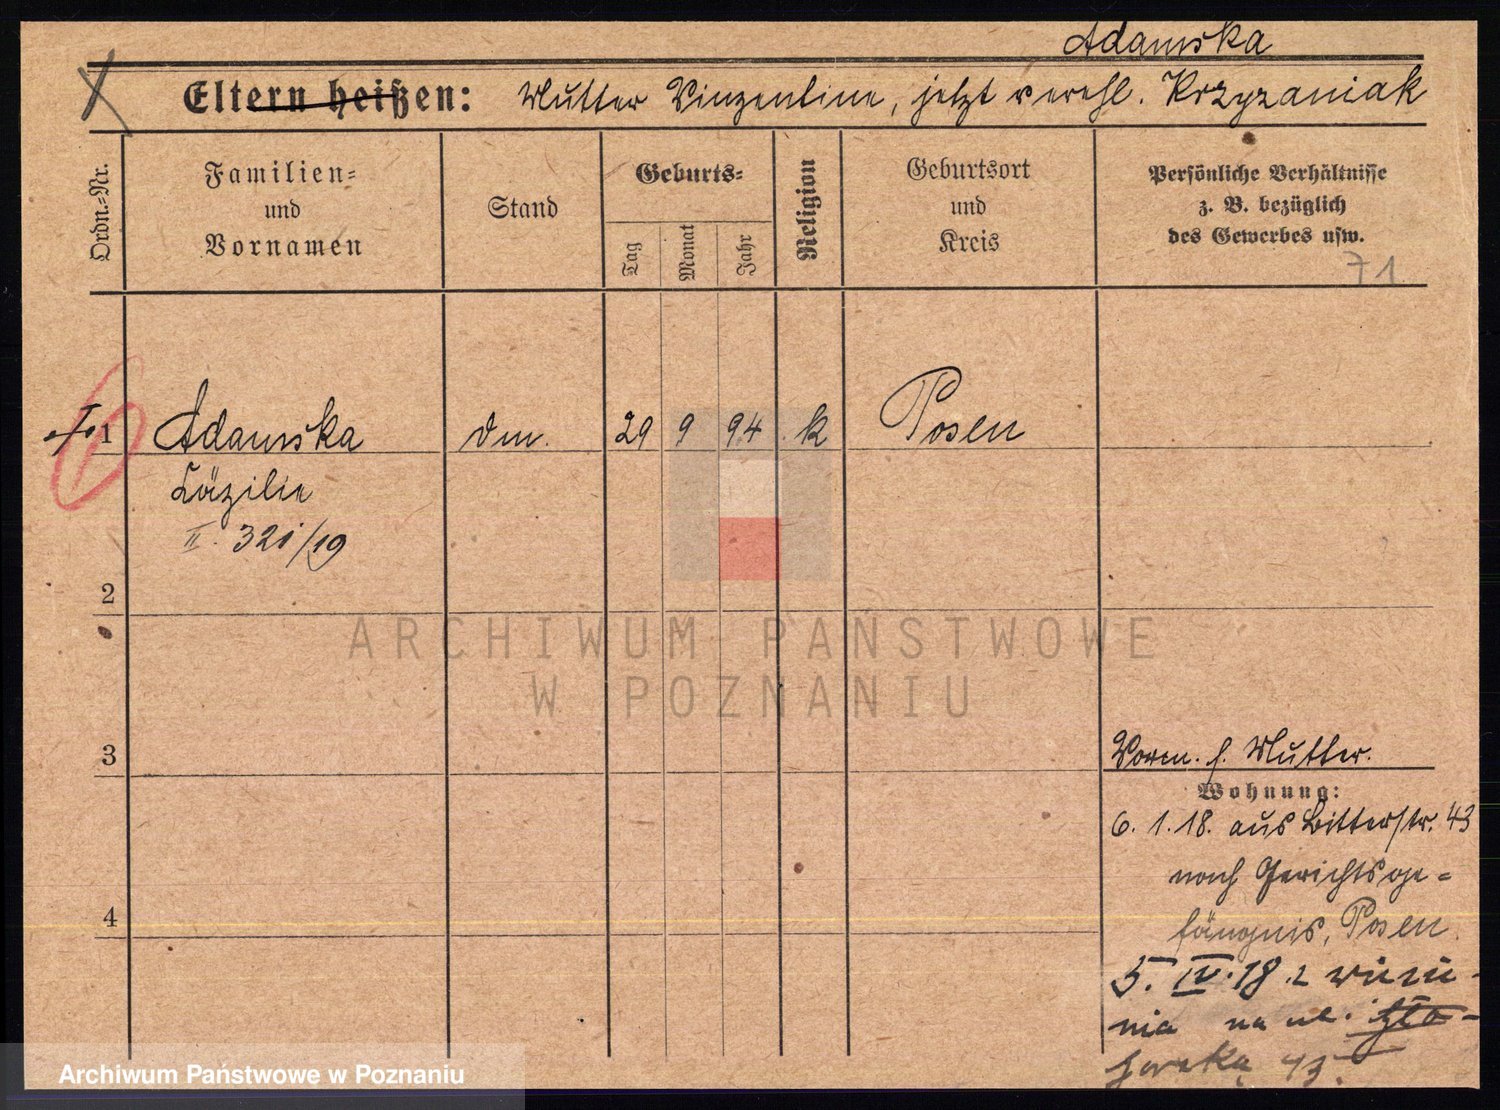 Adamska
Eltern heißen: Mutter Vinzentine, jetzt verehl. Krzyzaniak
Ordn.-Nr.
Familien- und Vornamen
Stand
Geburts-
Tag
Monat
Jahr
Religion
Geburtsort und Kreis
Persönliche Verhältnisse
z. B. bezüglich
des Gewerbes usw.
71
1 Adamska dm. 29 9 94 k Posen
Cäzilie
II. 321/19
2
3
4
Vorm. s. Mutter.
Wohnung:
6. 1. 18. aus Bitterstr. 43
nach Gerichtsge-
fängnis, Posen
5. IV. 18 z więzie-
nia na ul.
43.
ARCHIWUM PAŃSTWOWE
W POZNANIU
Archiwum Państwowe w Poznaniu